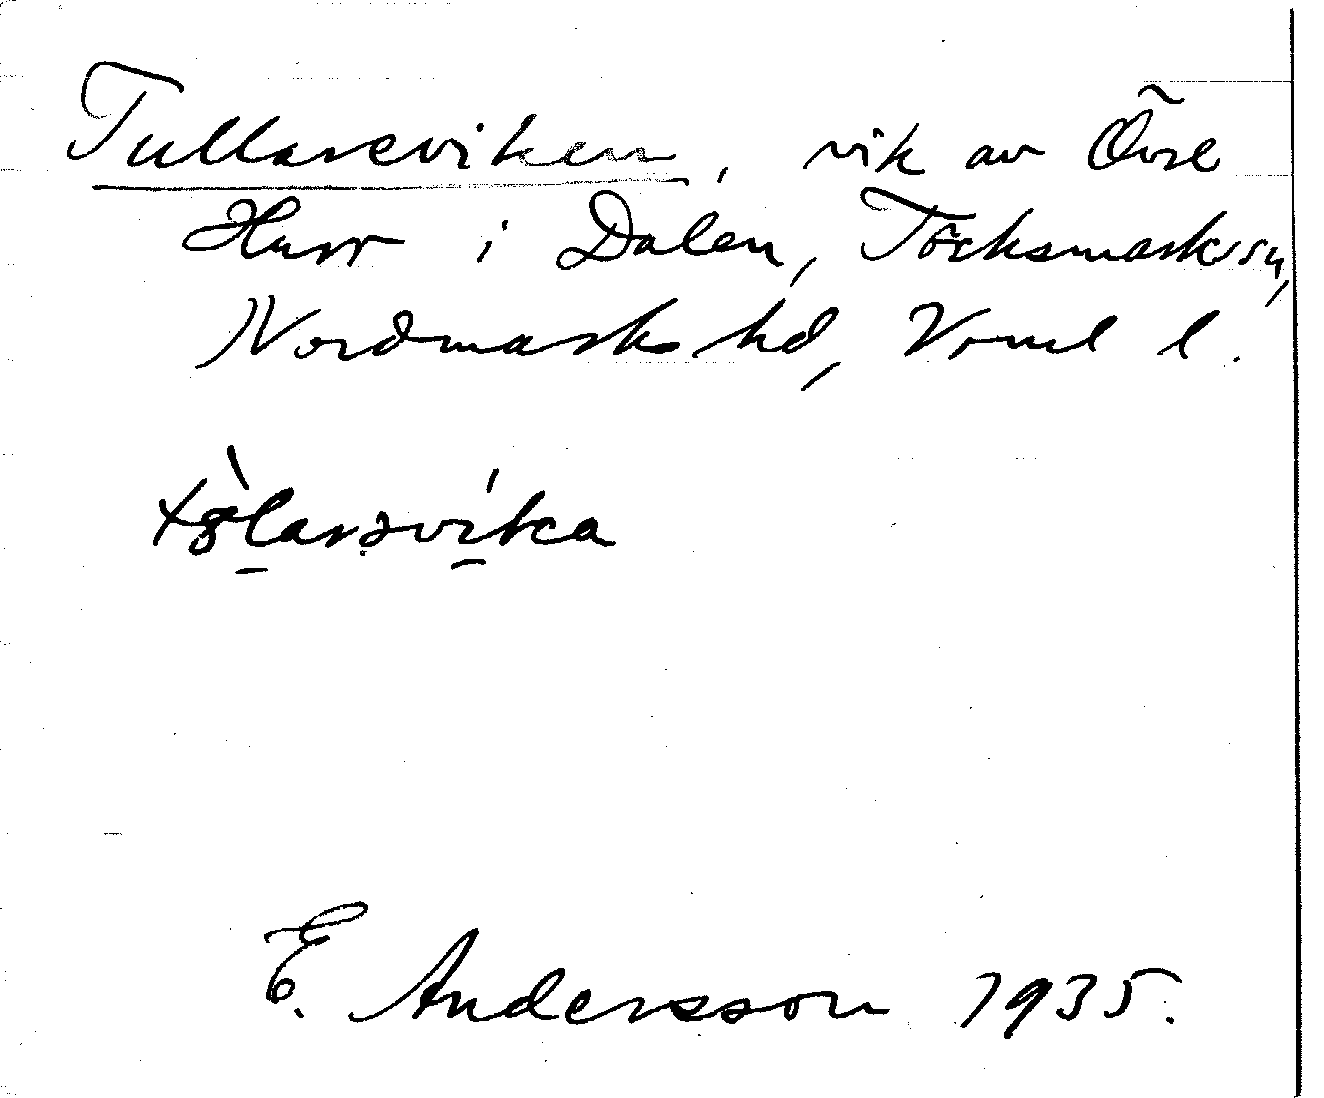 Tullareviken, vik av Övre
Hurr i Dalen, Töcksmarks sn,
Nordmarks hd, Vrml l.
E. Andersson 1935.